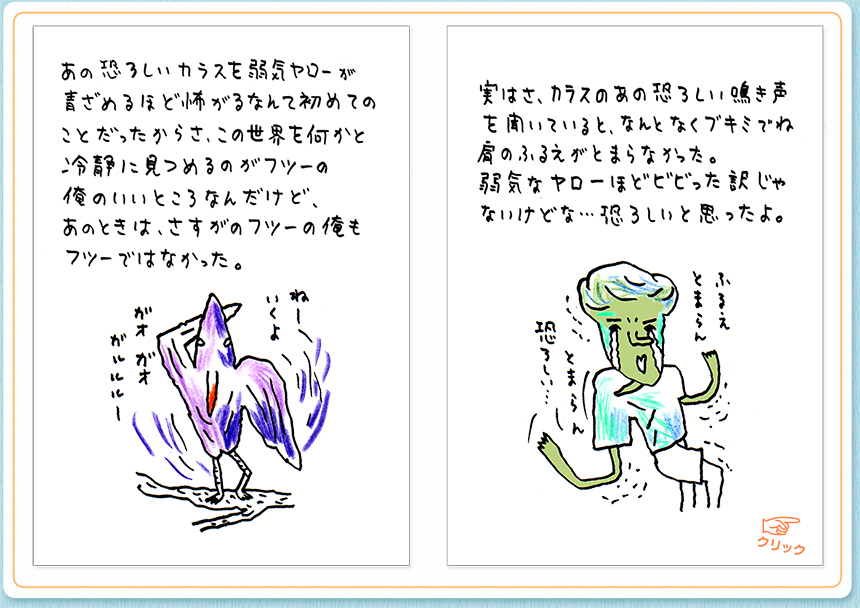 あの恐ろしいカラスを弱気ヤローが
青ざめるほど怖がるなんて初めての
ことだったからさ、この世界を何かと
冷静に見つめるのがフツーの
俺のいいところなんだけど、
あのときは、さすがのフツーの俺も
フツーではなかった。
ねー
いくよ
ガオ ガオ
ガルルルー
実はさ、カラスのあの恐ろしい鳴き声
を聞いていると、なんとなくブキミでね
肩のふるえがとまらなかった。
弱気なヤローほどビビった訳じゃ
ないけどな…恐ろしいと思ったよ。
ふるえ
とまらん
とまらん
恐ろしい…
クリック